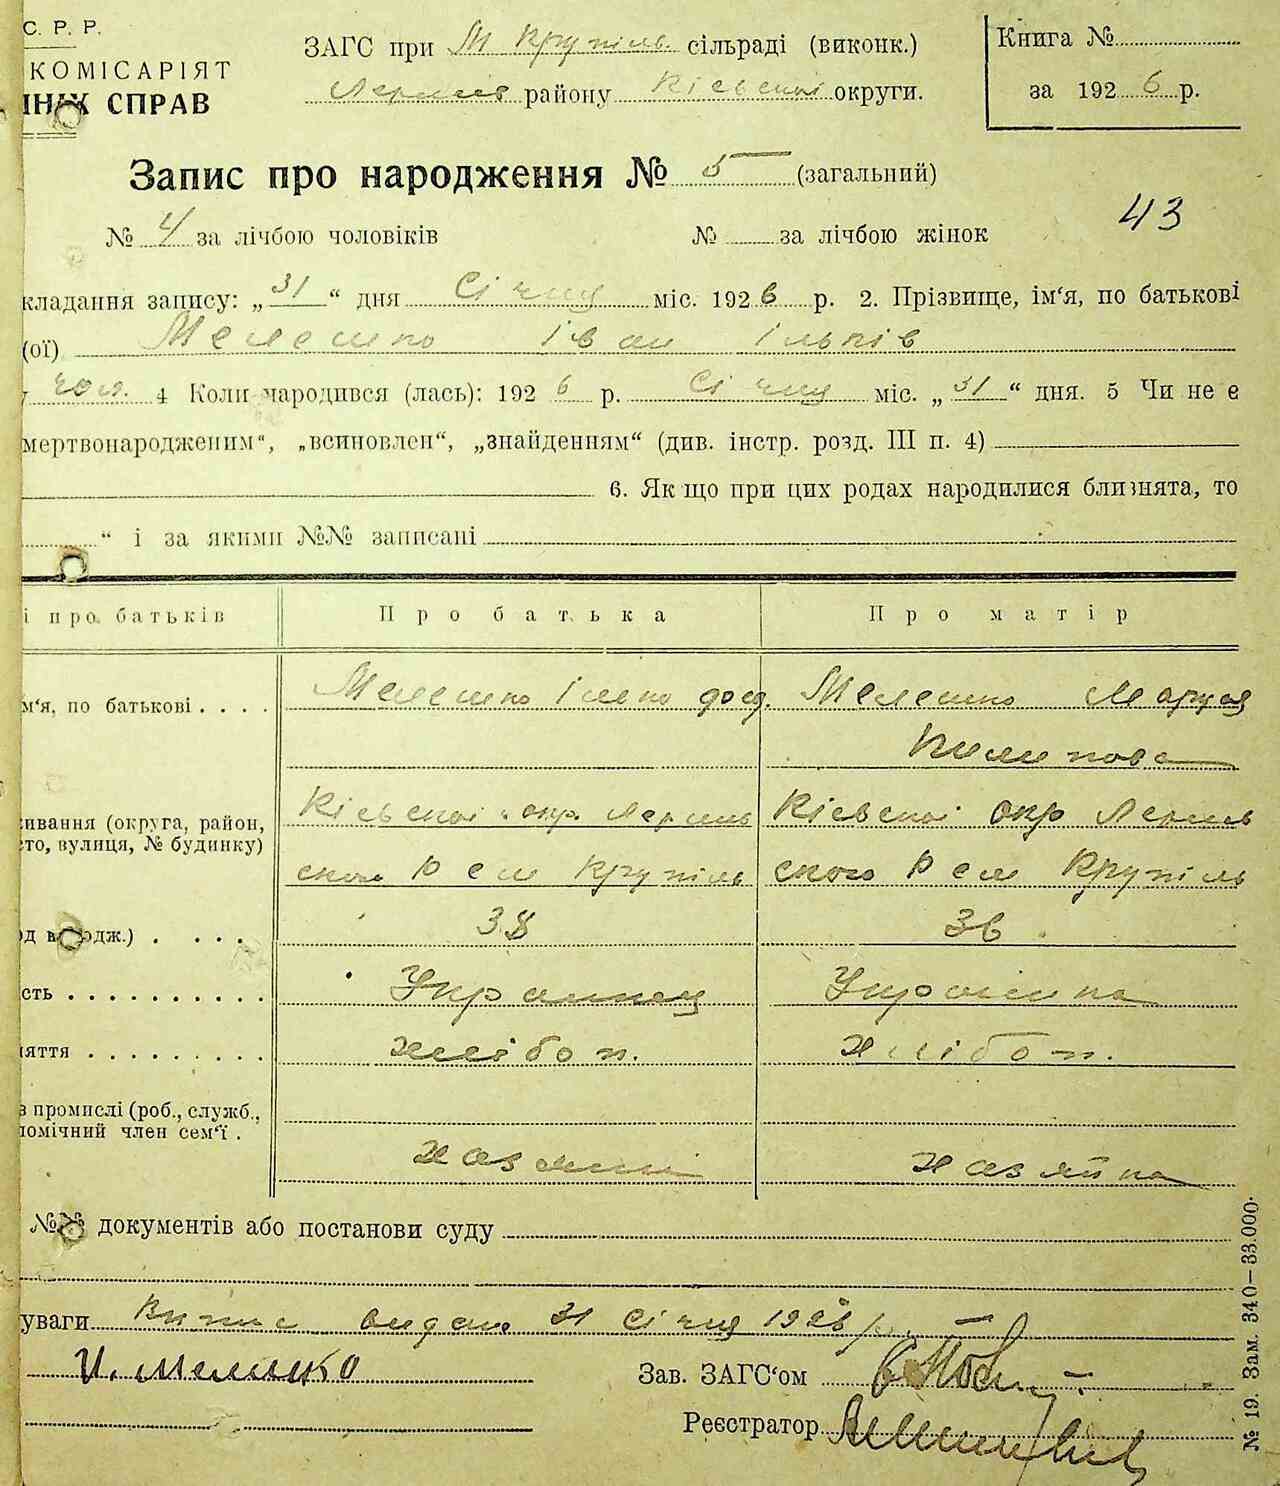 С. Р. Р.
КОМІСАРІЯТ
СПРАВ
ЗАГС при М Крупіль. сільраді (виконк.)
району Кіевскої округи.
Книга №
за 1926 р.
Запис про народження № 5 (загальний)
№ 4 за лічбою чоловіків № за лічбою жінок
43
кладання запису: „31“ дня Січня міс. 1926 р. 2. Прізвище, ім‘я, по батькові
(ої) Мелешко Іван Ільків
чол. 4 Коли народився (лась): 1926 р. Січня міс. „31“ дня. 5 Чи не є
мертвонародженим“, „всиновлен“, „знайденням“ (див. інстр. розд. III п. 4)
6. Як що при цих родах народилися близнята, то
“ і за якими №№ записані
і про батьків Про батька Про матір
м‘я, по батькові Мелешко Ілько Мелешко Марія
Килипова
ивання (округа, район, Кіевскої окр. Кіевскої окр
то, вулиця, № будинку)
ского Р с М Крупіль ского Р с М Крупіль
од в родж.) 38 36
сть Украинец Украінка
яття хлібоп. хлібоп.
в промислі (роб., служб.,
помічний член сем‘ї.
хазяін хазяйка
№№ документів або постанови суду
уваги Випис видан 31 січня 1926 р.
И. Мелишко Зав. ЗАГС‘ом
Реєстратор
№ 19. Зам. 340—33.000.